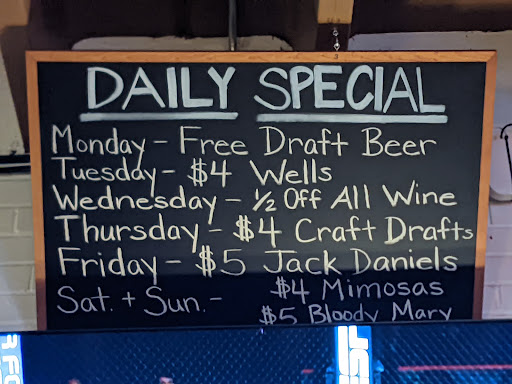 DAILY SPECIAL
Monday - Free Draft Beer
Tuesday - $4 Wells
Wednesday - ½ Off All Wine
Thursday - $4 Craft Drafts
Friday - $5 Jack Daniels
Sat. + Sun. - $4 Mimosas
$5 Bloody Mary